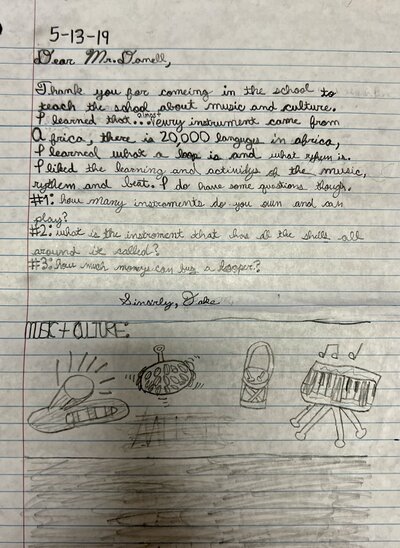 5-13-19
Dear Mr. Darrell,
Thank you for comeing in the school to
teach the school about music and culture.
I learned that... almost every instrument came from
Africa, there is 20,000 languges in africa,
I learned what a loop is and what rythum is.
I liked the learning and actividys of the music,
rythem and beat. I do have some questions though.
#1: how many instroments do you own and can
play?
#2: what is the instroment that has all the shells all
around it called?
#3: how much money can buy a looper?
Sincerly, Jake
MUSIC + CULTURE: